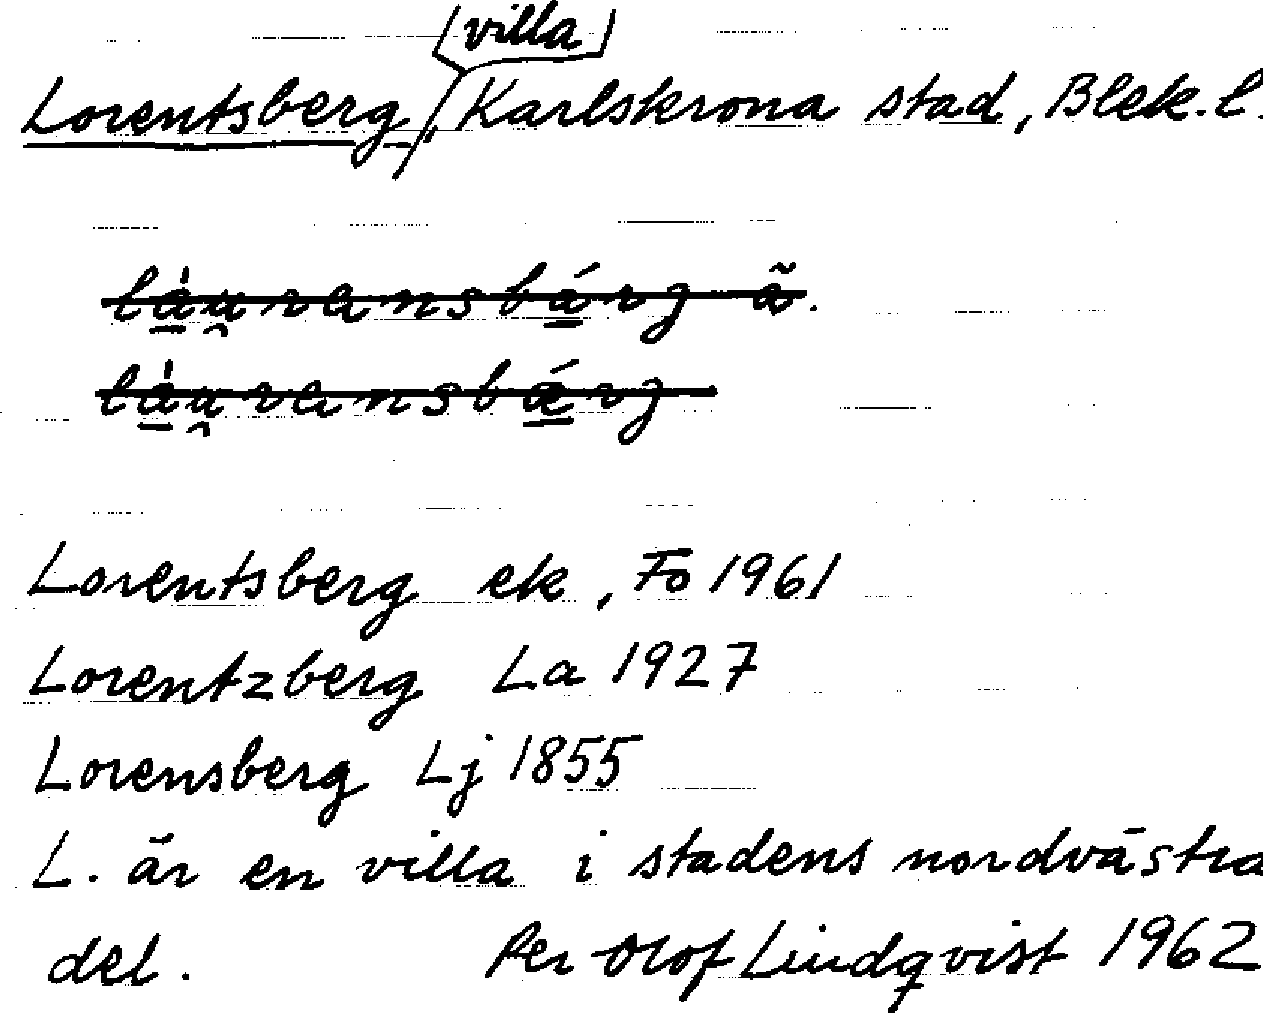 Lorentsberg, villa, Karlskrona stad, Blek. l.
Lorentsberg ek, Fo 1961
Lorentzberg La 1927
Lorensberg Lj 1855
L. är en villa i stadens nordvästra
del. Per Olof Lindqvist 1962